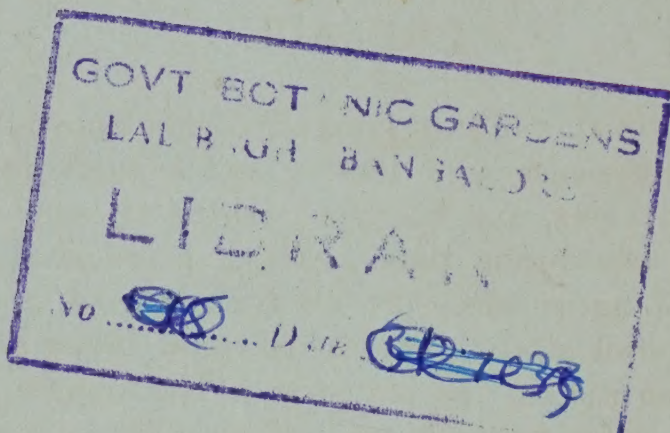 GOVT BOTANIC GARDENS
LAL BAGH BANGALORE
LIBRARY
No Date